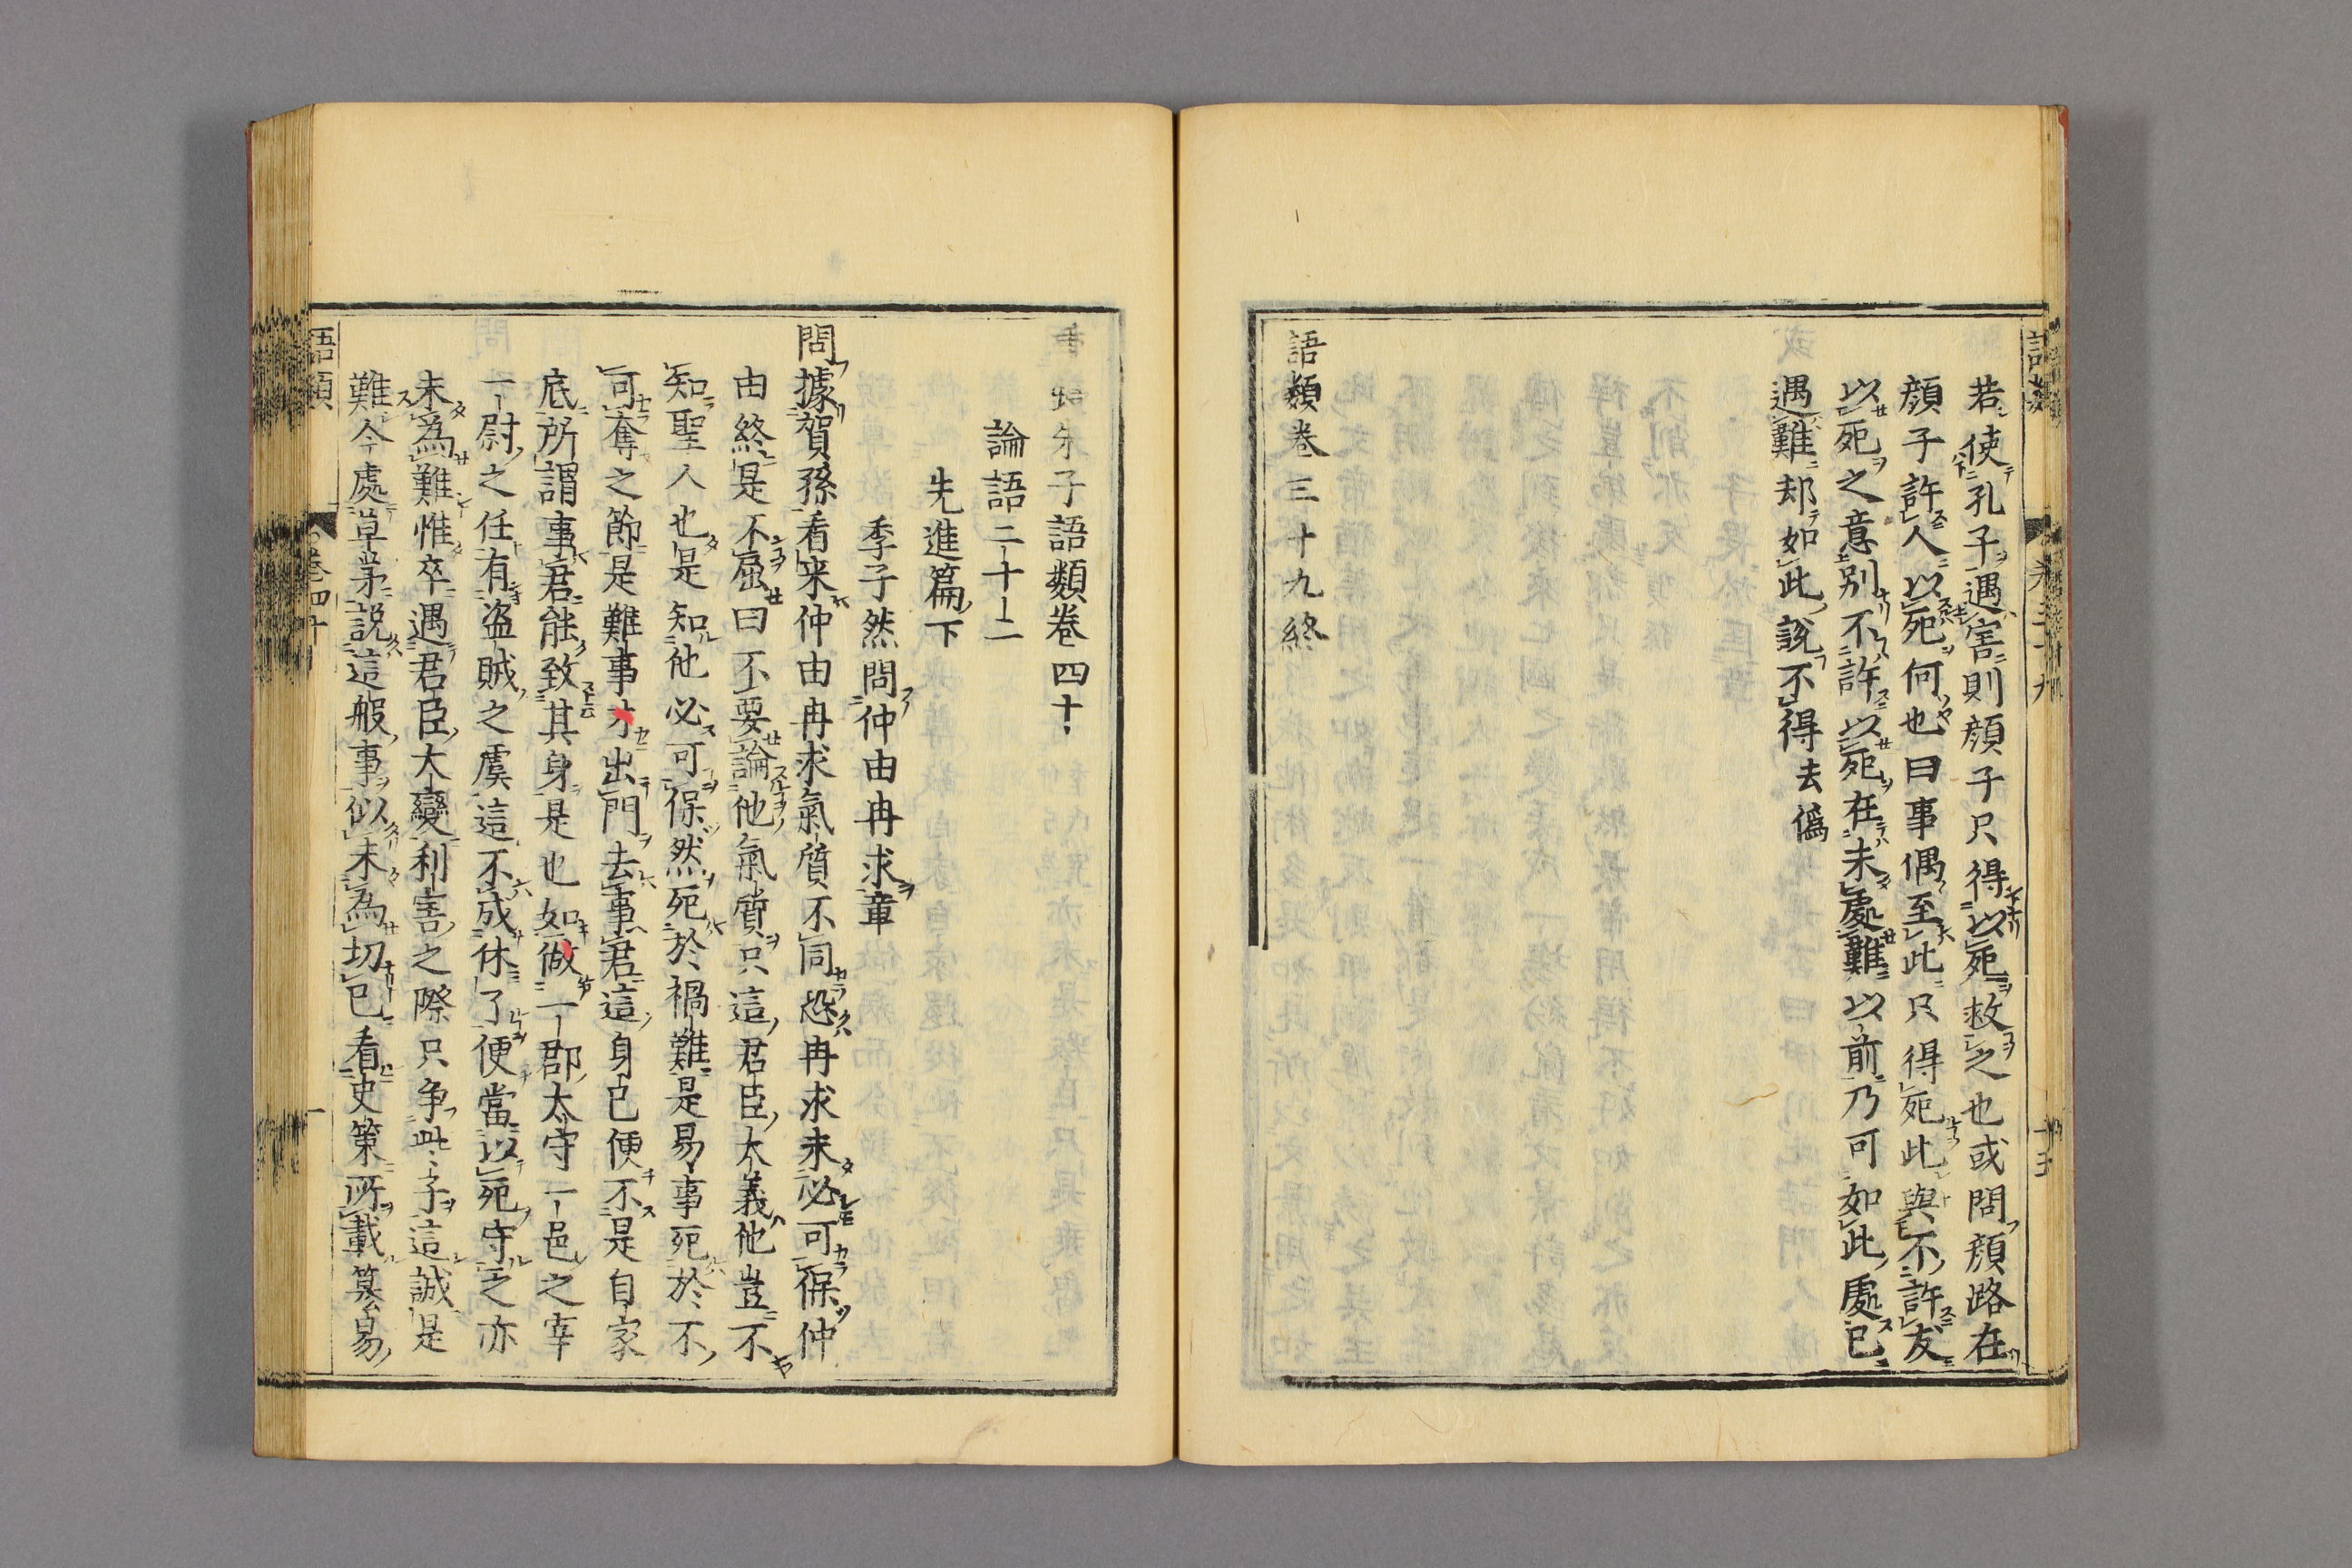 若使孔子遇害則顔子只得以死救之也或問顔路在
顔子許人以死何也曰事偶至此只得死此與不許友
以死之意別不許以死在未處難以前乃可如此處已
遇難却如此說不得去偽
語類巻三十九終
朱子語類巻四十
論語二十二
先進篇下
季子然問仲由冉求章
問據賀孫看来仲由冉求氣質不同恐冉求未必可保仲
由終是不屈曰不要論他氣質只這君臣大義他豈不
知聖人也是知他必可保然死於禍難是易事死於不
可奪之節是難事才出門去事君這身已便不是自家
底所謂事君能致其身是也如做一郡太守一邑之宰
一尉之任有盗賊之虞這不成休了便當以死守之亦
未為難惟卒遇君臣大變利害之際只争些子這誠是
難今處草茅説這般事似未為切已看史策所載篡易
語類
巻四十
一